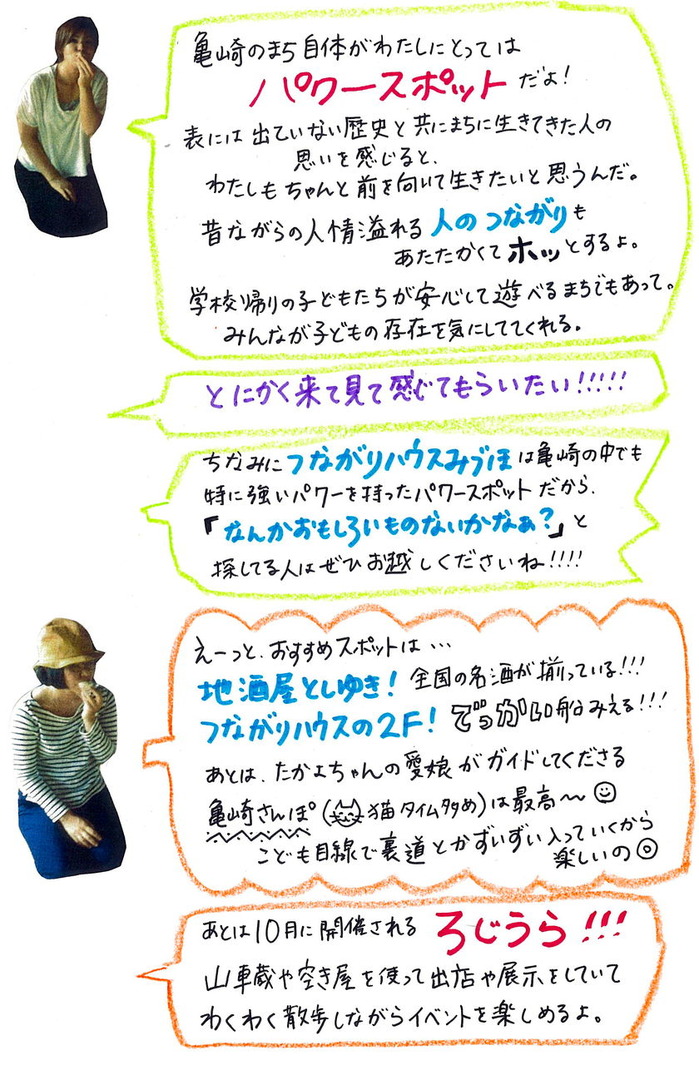 亀崎のまち自体がわたしにとっては
パワースポットだよ!
表には出ていない歴史と共にまちに生きてきた人の
思いを感じると、
わたしもちゃんと前を向いて生きたいと思うんだ。
昔ながらの人情溢れる人のつながりも
あたたかくてホッとするよ。
学校帰りの子どもたちが安心して遊べるまちでもあって。
みんなが子どもの存在を気にしててくれる。
とにかく来て見て感じてもらいたい!!!!!
ちなみにつながりハウスみづほは亀崎の中でも
特に強いパワーを持ったパワースポットだから、
「なんかおもしろいものないかなぁ?」と
探してる人はぜひお越しくださいね!!!!
えーっと、おすすめスポットは…
地酒屋としゆき! 全国の名酒が揃っている!!!
つながりハウスの2F! でっかい船みえる!!!
あとは、たかよちゃんの愛娘がガイドしてくださる
亀崎さんぽ(猫タイム多め)は最高〜
こども目線で裏道とかずいずい入っていくから
楽しいの
あとは10月に開催されるろじうら!!!
山車蔵や空き屋を使って出店や展示をしていて
わくわく散歩しながらイベントを楽しめるよ。